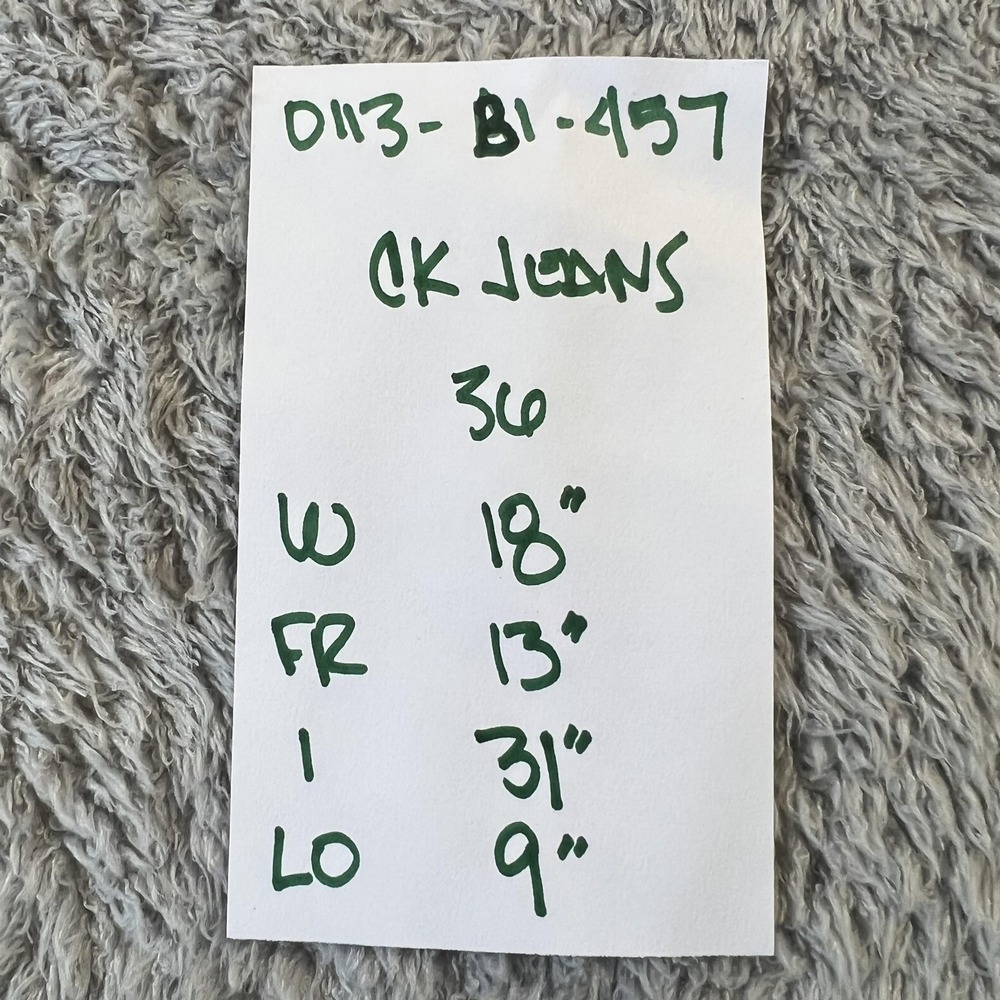 0113- B1 -457
CK JEANS
36
W 18"
FR 13"
I 31"
LO 9"